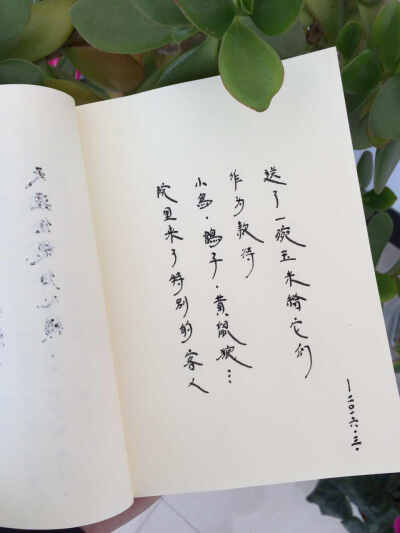 院里来了特别的客人
小鸟·鸽子·黄鼠狼…
作为款待
送了一碗玉米给它们
—二〇一六·三·